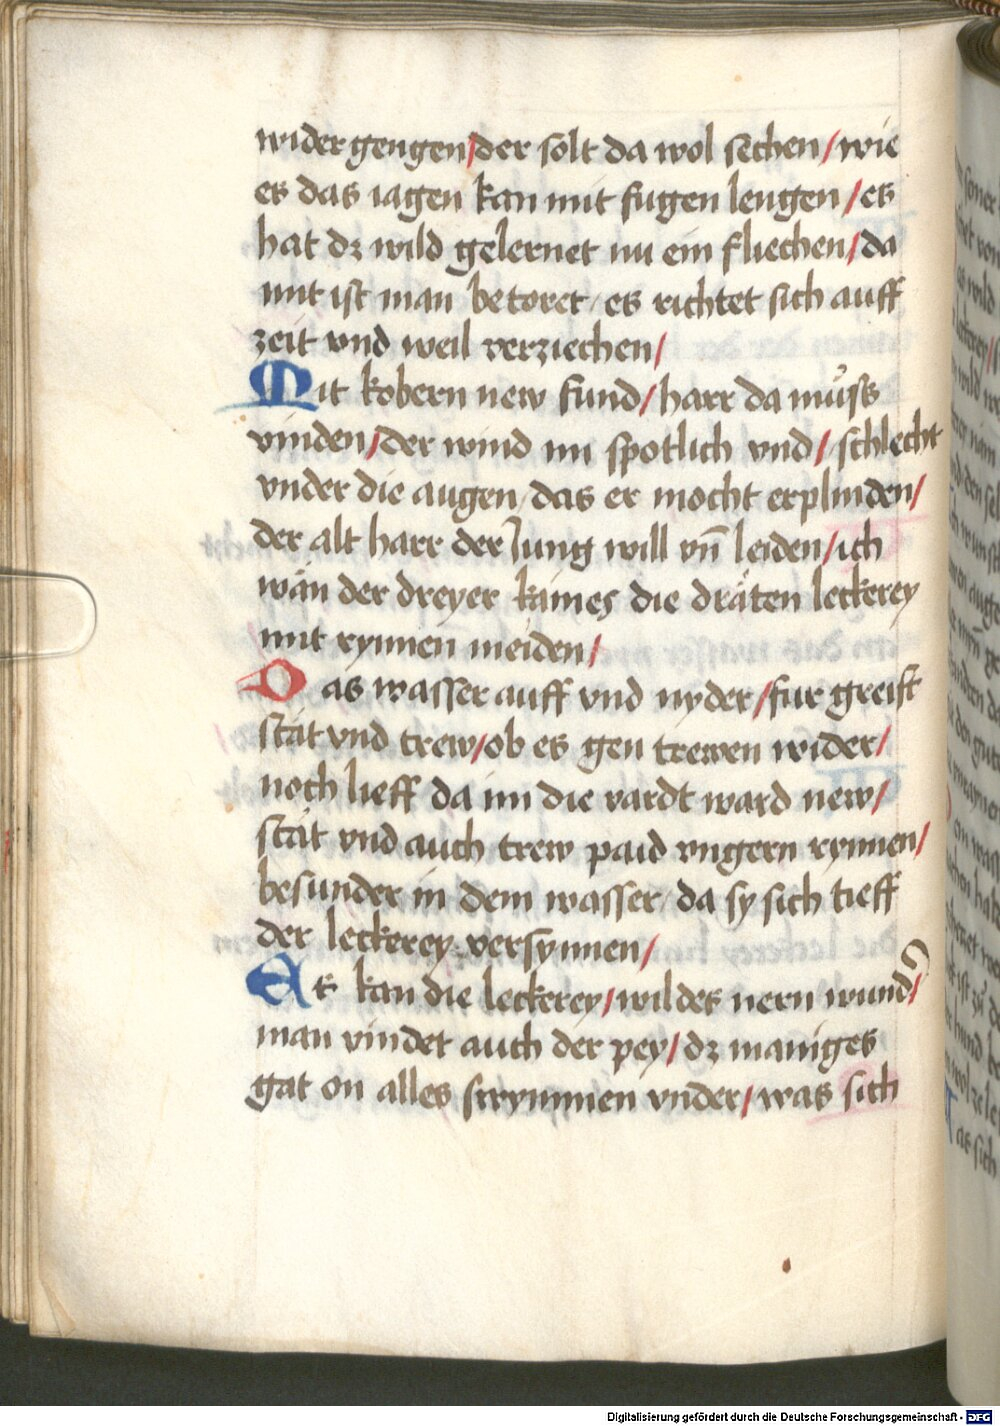 wider gengen / der solt da wol sechen / wie
es das iagen kan mit fugen lengen / es
hat dz wild gelernet nu ein fliechen / da
mit ist man betoret / es richtet sich auff
zeit vnd weil verziechen /
Mit kobern new fund / harr da müss
vinden / der wind im spotlich vnd / schlecht
vnder die augen / das er mocht erplinden /
der alt harr der Jung will vn̄ leiden / ich
wän der dreyer kaines die dräten leckerey
mit rynnen meiden /
Das wasser auff vnd nyder / fur greift
stät vnd trew / ob es gen trewen wider /
noch lieff da im die vardt ward new /
stät vnd auch trew paid vngern rynnen /
besunder in dem wasser / da sy sich tieff
der leckerey versynnen /
Er kan die leckerey / wildes nern wund /
man vindet auch der pey / dz maniges
gat on alles swymmen vnder / was sich
Digitalisierung gefördert durch die Deutsche Forschungsgemeinschaft - DFG